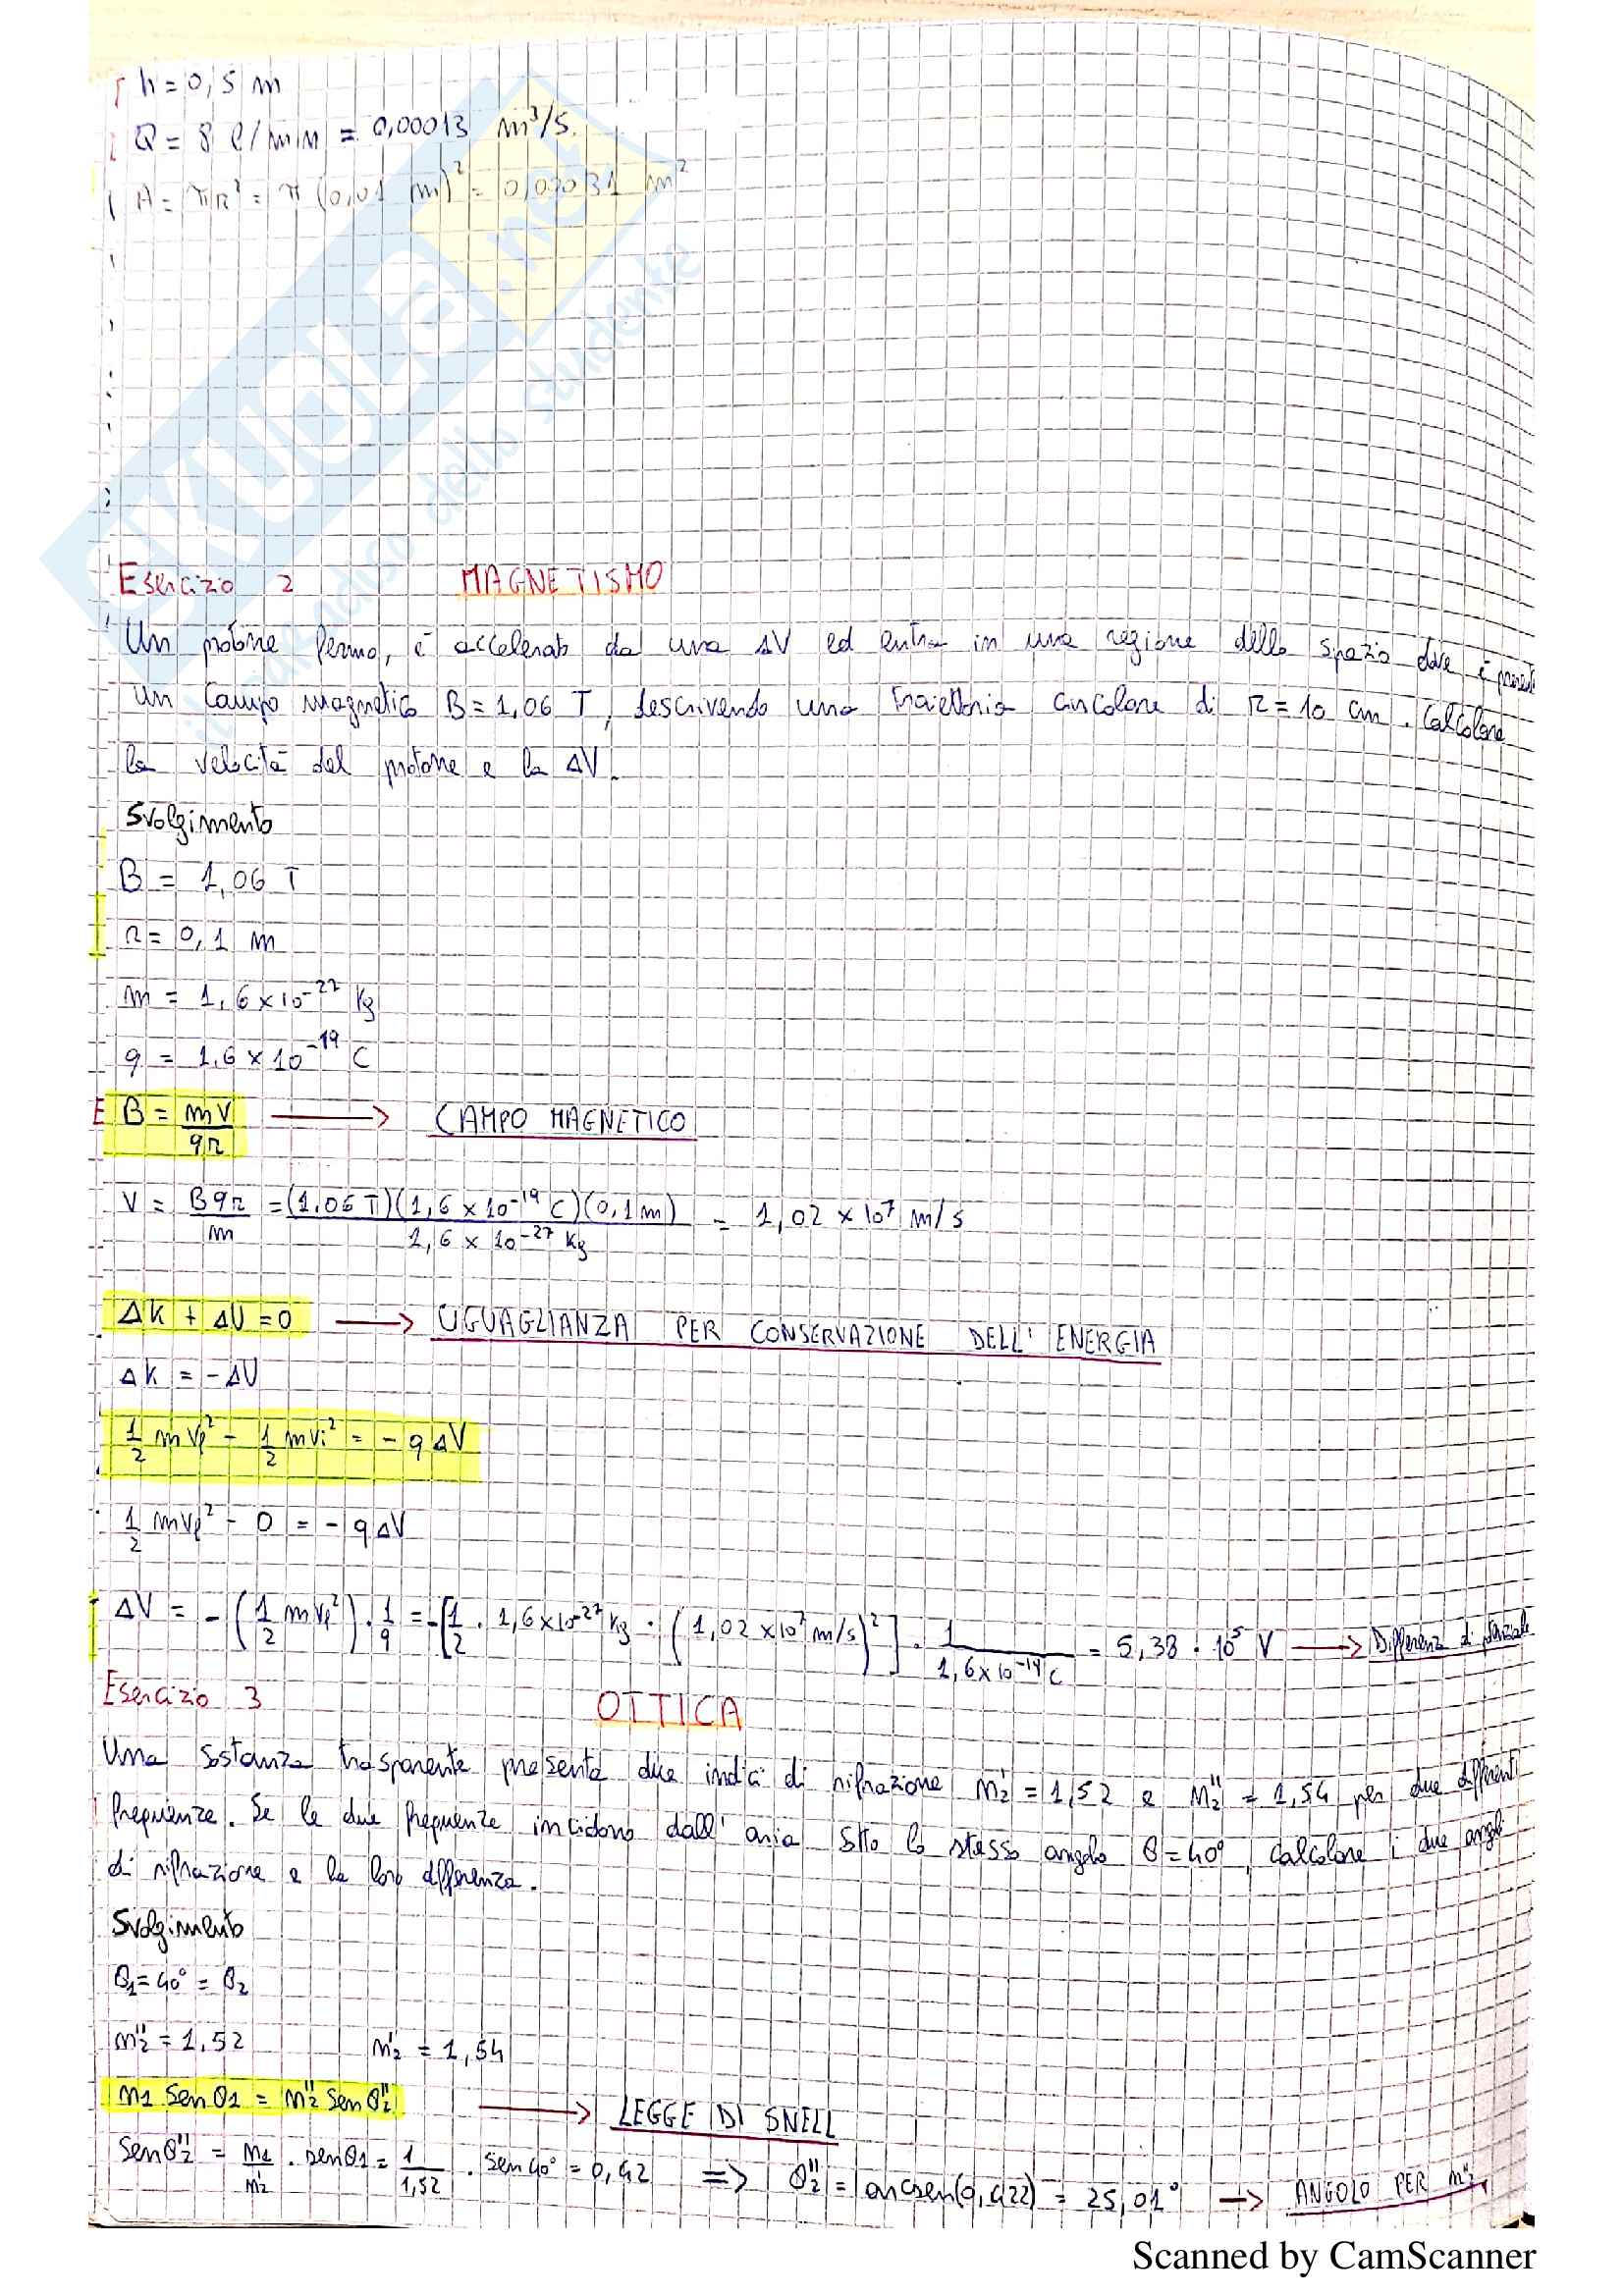 h = 0,5 m
Q = 8 l/min = 0,00013 m³/s.
A = πR² = π (0,01 m)² = 0,00031 m²
SKUOLA.net
il paradiso dello studente
Esercizio 2 MAGNETISMO
Un protone fermo, è accelerato da una ΔV ed entra in una regione dello spazio dove è presente
un campo magnetico B = 1,06 T, descrivendo una traiettoria circolare di R = 10 cm. Calcolare
la velocità del protone e la ΔV.
Svolgimento
B = 1,06 T
R = 0,1 m
m = 1,6 x 10⁻²⁷ Kg
q = 1,6 x 10⁻¹⁹ C
B = mV/qR → CAMPO MAGNETICO
V = BqR/m = (1,06 T)(1,6 x 10⁻¹⁹ C)(0,1 m)/1,6 x 10⁻²⁷ Kg = 1,02 x 10⁷ m/s
ΔK + ΔU = 0 → UGUAGLIANZA PER CONSERVAZIONE DELL' ENERGIA
ΔK = -ΔU
1/2 mVf² - 1/2 mVi² = - qΔV
1/2 mVf² - 0 = - qΔV
ΔV = -(1/2 mVf²) · 1/q = -[1/2 · 1,6 x 10⁻²⁷ Kg · (1,02 x 10⁷ m/s)²] · 1/1,6 x 10⁻¹⁹ C = 5,38 · 10⁵ V → Differenza di potenziale
Esercizio 3 OTTICA
Una sostanza trasparente presenta due indici di rifrazione n₂' = 1,52 e n₂'' = 1,54 per due differenti
frequenze. Se le due frequenze incidono dall' aria sotto lo stesso angolo θ = 40°, calcolare i due angoli
di rifrazione e la loro differenza.
Svolgimento
θ₁ = 40° = θ₂
n₂'' = 1,52 n₂' = 1,54
n₁ sen θ₁ = n₂'' sen θ₂'' → LEGGE DI SNELL
sen θ₂'' = n₁/n₂' · sen θ₁ = 1/1,52 · sen 40° = 0,42 => θ₂'' = arcsen(0,422) = 25,01° → ANGOLO PER n₂''
Scanned by CamScanner